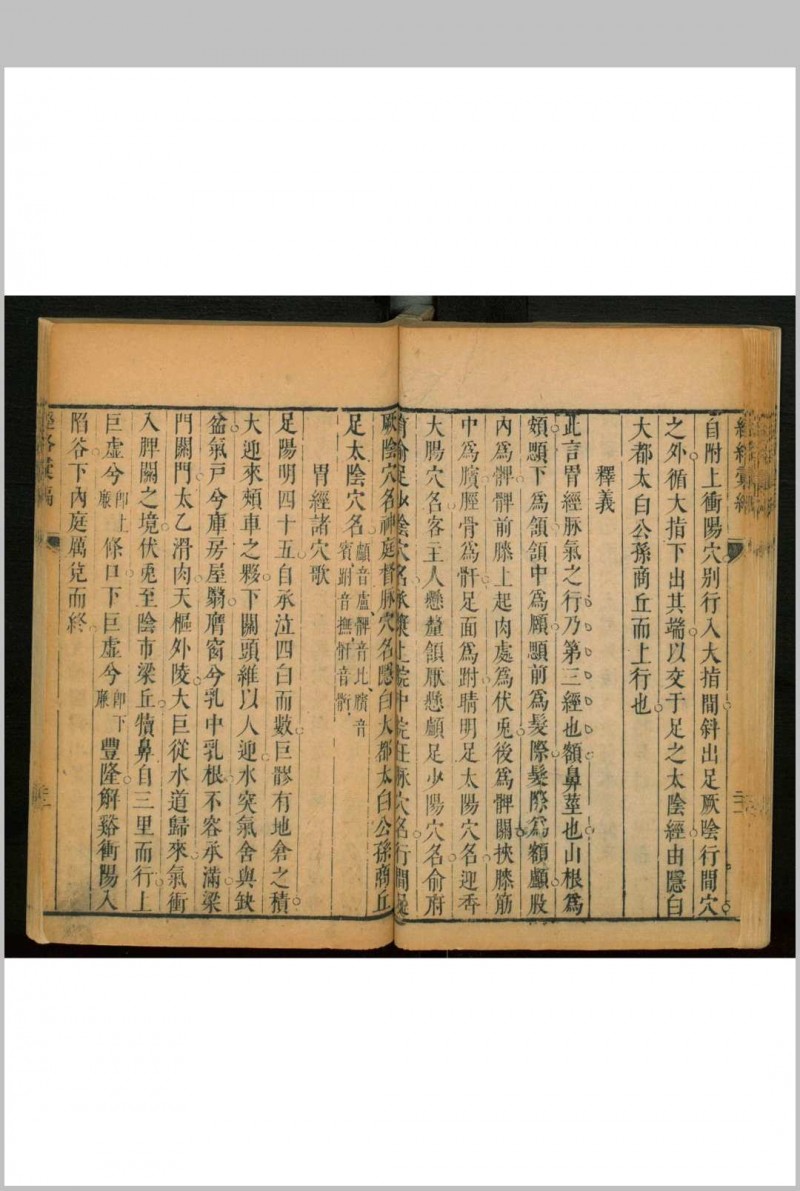 自附上衝陽穴別行入大指間斜出足厥陰行間穴
之外循大指下出其端以交于足之太陰經由隱白
大都太白公孫商丘而上行也
釋義
此言胃經脉氣之行乃第三經也額鼻莖也山根爲
頞顋下爲頷頷中爲顋前爲髮際髮際爲額顱股
內爲髀髀前膝上起肉處爲伏兎後爲髀關挾膝筋
中爲臏脛骨爲骭足面爲跗睛明足太陽穴名迎香
大腸穴名客主人懸釐頷厭懸顱足少陽穴名俞府
足少陰穴名承漿上脘中脘任脉穴名行間
厥陰穴名神庭督脉穴名隱白大都太白公孫商丘
足太陰穴名顱音盧髀音比臏音賓跗音撫骭音
胃經諸穴歌
足陽明四十五自承泣四白而數巨髎有地倉之積
大迎來頰車之夥下關頭維以人迎水突氣舍與缺
盆氣戶兮庫房屋翳膺窗兮乳中乳根不容承滿梁
門關門太乙滑肉天樞外陵大巨從水道歸來氣衝
入髀關之境伏兎至陰市梁丘犢鼻自三里而行上
巨虛兮即上廉條口下巨虛兮即下廉豐隆解谿衝陽入
陷谷下內庭厲兌而終